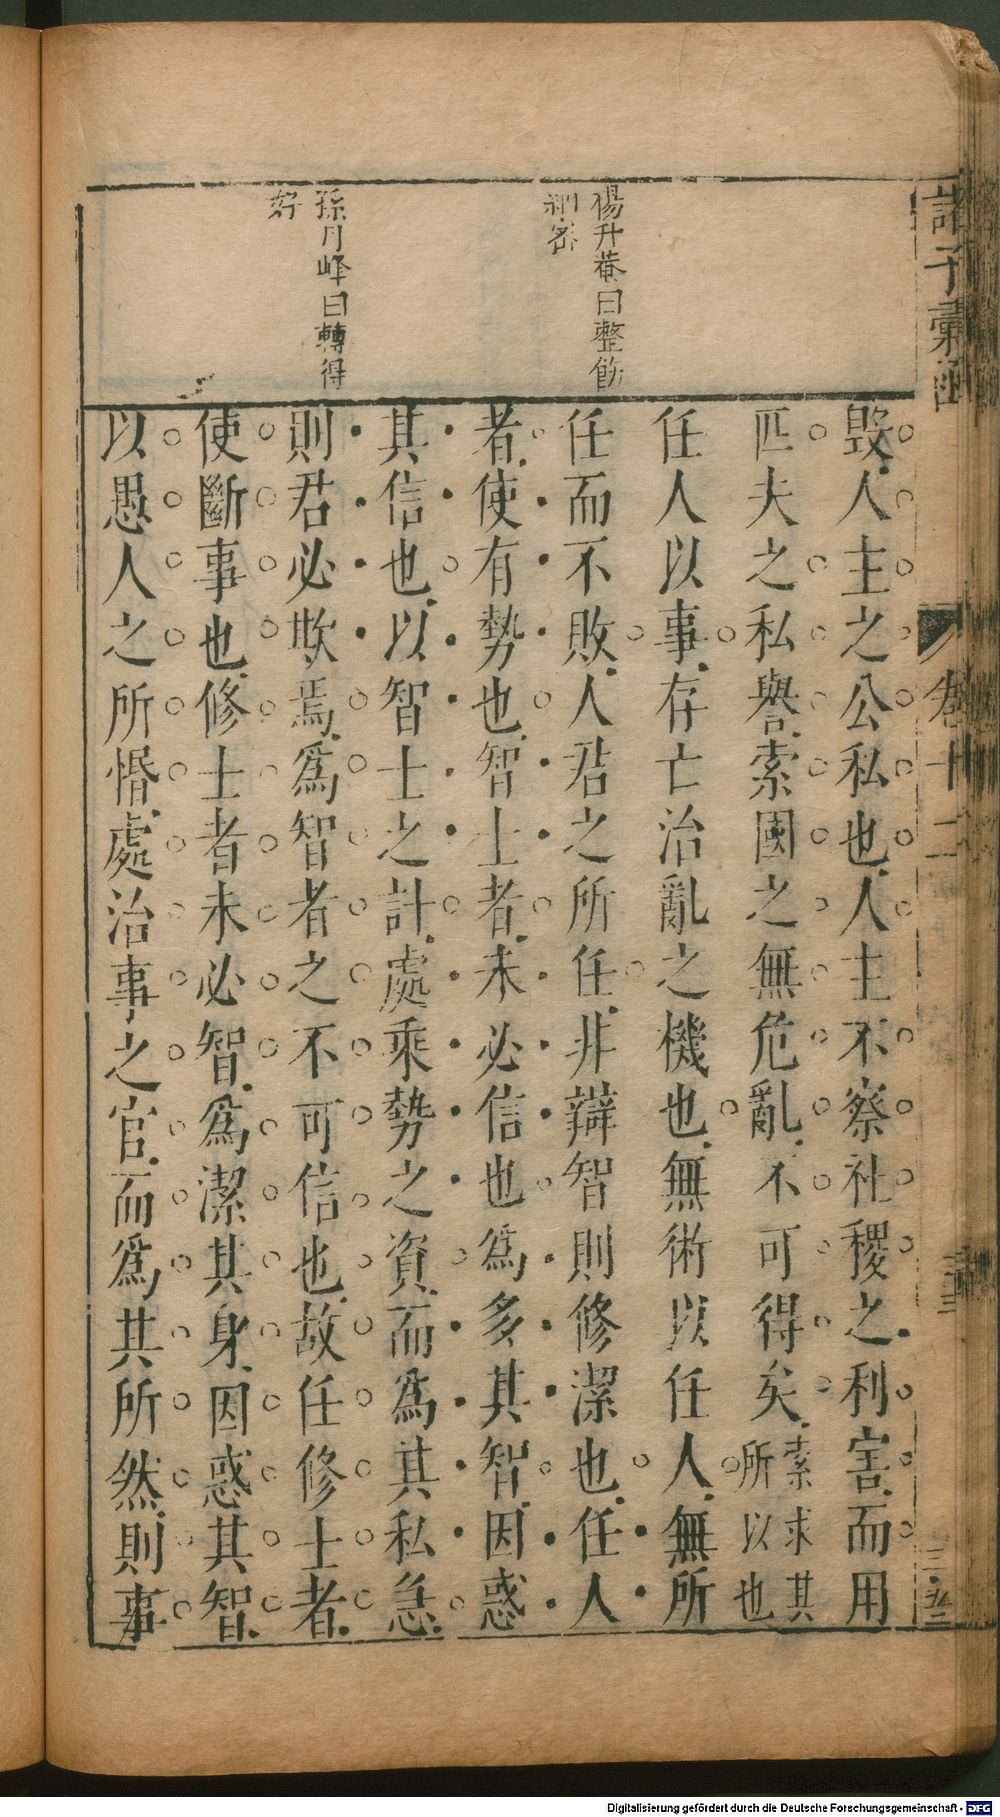 諸子彙函
卷十二
楊升菴曰整飭
細密
孫月峰曰轉得
好
毀人主之公私也人主不察社稷之利害而用
匹夫之私譽索國之無危亂不可得矣索求其所以也
任人以事存亡治亂之機也無術以任人無所
任而不敗人君之所任非辯智則修潔也任人
者使有勢也智士者未必信也為多其智因惑
其信也以智士之計處乘勢之資而為其私急
則君必欺焉為智者之不可信也故任修士者
使斷事也修士者未必智為潔其身因惑其智
以愚人之所惛處治事之官而為其所然則事
Digitalisierung gefördert durch die Deutsche Forschungsgemeinschaft - DFG